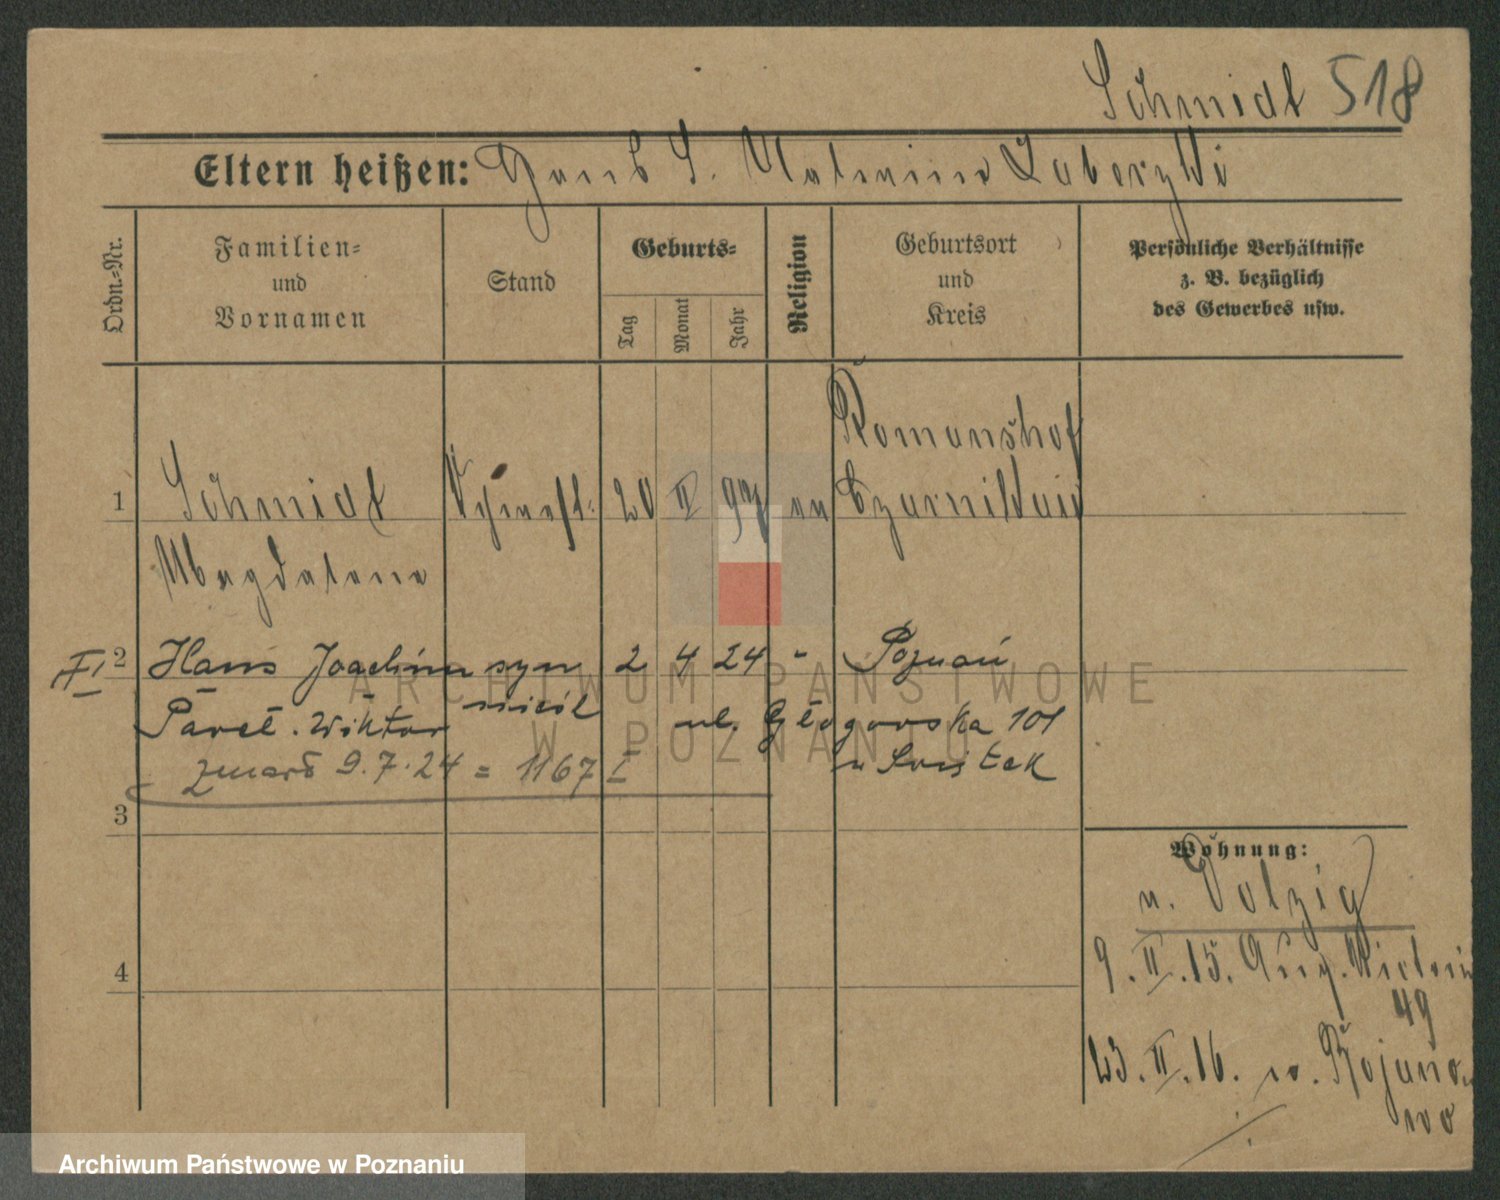 Schmidt 518
Eltern heißen: S.
Ordn.-Nr.
Familien- und Vornamen
Stand
Geburts-
Tag
Monat
Jahr
Religion
Geburtsort und Kreis
Persönliche Verhältnisse z. B. bezüglich des Gewerbes usw.
Romanshof
1 Schmidt 20 II 97 Czarnikau
Magdalena
II 2 Hans Joachim syn 2 4 24 " Poznań
Paweł. Wiktor nieśl ul. Głogowska 101
zmarł 9.7.24 = 1167 I
3
Wohnung:
n. Dolzig
4
9. II. 15. Aug. Victoria
49
23. II. 16. Rojano-
wo
ARCHIWUM PAŃSTWOWE
W POZNANIU
Archiwum Państwowe w Poznaniu